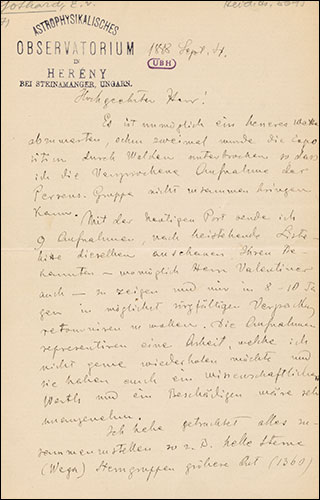 Gothard, E. v.
ASTROPHYSIKALISCHES
OBSERVATORIUM
IN
HERÉNY
BEI STEINAMANGER, UNGARN.
1888 Sept. 11.
UBH
Hochgeehrter Herr!
Es ist unmöglich ein heiteres Wetter
abzuwarten, schon zweimal wurde die Expo-
sition durch Wolken unterbrochen so dass
ich die versprochene Aufnahme der
Perseus-Gruppe nicht zusammen bringen
kann.
Mit der heutigen Post sende ich
9 Aufnahmen, nach beistehende Liste
dieselben anschauen, Ihren Be-
kannten – womöglich Herr Valentiner
auch – zu zeigen und mir in 8–10 Ta-
gen in möglichst sorgfältigen Verpackung
retourniren zu wollen. Die Aufnahmen
representiren eine Arbeit, welche ich
nicht gerne wiederholen möchte und
sie haben auch ein wissenschaftlichen
Werth und ein Beschädigen wäre sehr
unangenehm.
Ich habe getrachtet alles zu-
sammenzustellen so z. B. helle Sterne
(Wega) Sterngruppen größere Art (1360)